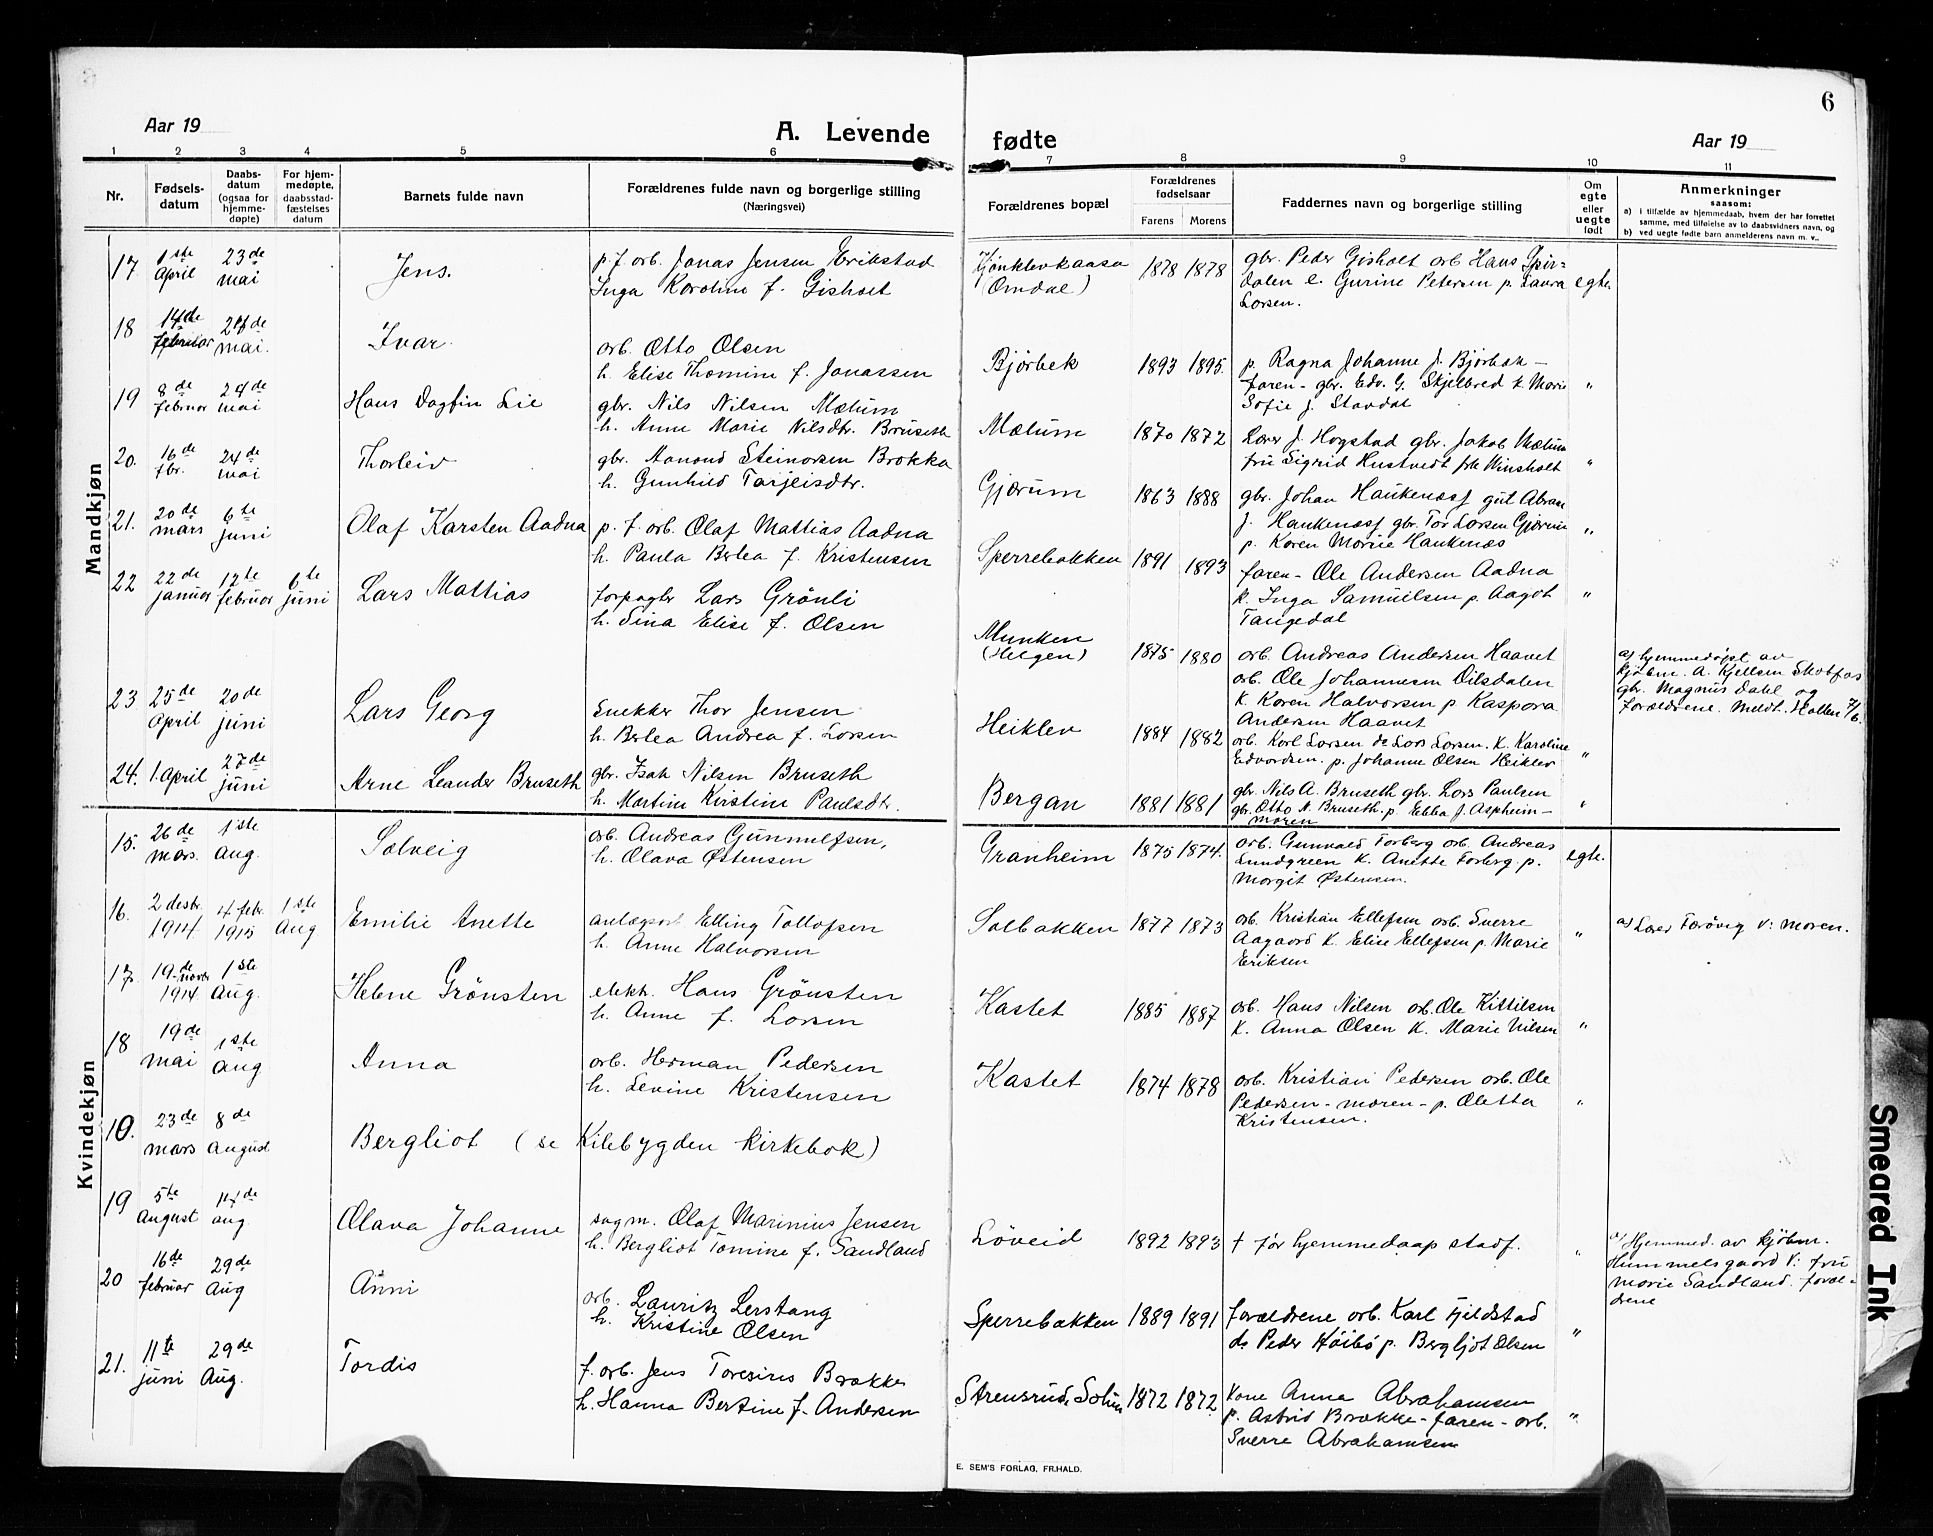 6
Aar 19
A. Levende
fødte
Aar 19
1 2 3 4 5 6 7 8 9 10 11
Nr.
Fødsels-
datum
Daabs-
datum
(ogsaa for
hjemme-
døpte)
For hjem-
medøpte,
daabsstad-
fæstelses
datum
Barnets fulde navn
Forældrenes fulde navn og borgerlige stilling
(Næringsvei)
Forældrenes bopæl
Forældrenes
fødselsaar
Farens Morens
Faddernes navn og borgerlige stilling
Om
egte
eller
uegte
født
Anmerkninger
saasom:
a) i tilfælde av hjemmedaab, hvem der har forrettet
samme, med tilføielse av to daabsvidners navn, og
b) ved uegte fødte barn anmelderens navn m. v..
Mandkjøn
17 1ste April 23de mai Jens. p. f. orb. Jonas Jensen Erikstad
Inga Karoline f. Gisholt
(Omdal) 1878 1878 gbr. Peder Gisholt orb Hans
dalen e. Gurine Petersen p. Laura egte.
Larsen.
18 14de februar mai. Ivar. orb. Otto Olsen
h. Elise Thomine f. Jonassen
Bjørbek 1893 1895. p. Ragna Johanne J. Bjørbek –
faren – gbr. Edv. G. Skjelbred k. Marie "
Sofie J. Stavdal
19 8de februar 24de mai Hans Dagfin Lie gbr. Nils Nilsen Mælum
h. Anne Marie Nilsdtr. Bruseth
Mælum 1870 1872 Lærer J. Hogstad gbr. Jakob Mælum
fru Sigrid Hustvedt frk Winsholt "
20. 16de fbr. 24de mai Thorleiv gbr. Aanond Steinarsen Brokka
h. Gunhild Tarjeisdtr.
Gjærum 1863 1888 gbr. Johan Haukenæss gut Abram
J. Haukenæss gbr. Tor Larsen Gjærum "
p. Karen Marie Haukenæs
21. 20de mars 6te juni Olaf Karsten Aadna p. f. orb. Olaf Mattias Aadna
h. Paula Berlea f. Kristensen
Sperrebakken 1891 1893 faren – Ole Andersen Aadna
k. Inga Samuelsen p. Aagot "
Tangedal
22 22de januar 12te februar 6te juni Lars Mattias forpagter Lars Grönli
h. Sina Elise f. Olsen
Munken
(Helgen) 1875 1880 orb. Andreas Andersen Haavet
orb. Ole Johannesen Dilsdalen
k. Karen Halvorsen p. Kaspara
Andersen Haavet
a) hjemmedøpt av
kjøbm. A. Kjellsen Skotfos
gbr. Magnus Dahl og
forældrene. Meldt. Hollen 7/6.
23 25de April 20de juni Lars Georg Snekker Thor Jensen
h. Berlea Andrea f. Larsen
Heiklev 1884 1882 orb. Karl Larsen do Lars Larsen. k. Karoline
Edvardsen. p. Johanne Olsen Heiklev "
24. 1. April 27de juni Arne Leander Bruseth gbr. Isak Nilsen Bruseth
h. Martine Kirstine Paulsdtr.
Bergan 1881 1881 gbr. Nils A. Bruseth gbr. Lars Paulsen
gbr. Otto N. Bruseth. p. Ebba J. Aspheim – "
moren
Kvindekjøn
15. 26de mars. 1ste Aug. Solveig orb. Andreas Gunnulfsen,
h. Olava Østensen
Granheim 1875 1874. orb. Gunvald Forberg orb. Andreas
Lundgreen k. Anette Forberg. p. egte.
Margit Østensen.
16. 2 desbr. 1914 4 febr. 1915 1ste Aug Emilie Anette anlægsarb Elling Tollofsen
h. Anne Halvorsen
Solbakken 1877 1873 orb. Kristian Ellefsen orb. Sverre
Aagaard k. Elise Ellefsen p. Marie "
Eriksen
a) Lærer Farövig V: moren.
17. 19de novbr 1914 1ste Aug. Helene Grönsten elekh. Hans Grönsten
h. Anne f. Larsen
Kastet 1885 1887 orb. Hans Nilsen orb. Ole Kittilsen
k. Anna Olsen k. Marie Nilsen "
18 19de mai 1ste Aug Anna orb. Herman Pedersen
h. Levine Kristensen
Kastet 1874 1878 orb. Kristian Pedersen orb. Ole
Pedersen – moren – p. Oletta "
Kristensen.
10. 23de mars 8de August Bergliot (se Kilebygden kirkebok)
19 5te August 11de aug. Olava Johanne sagm. Olaf Marinius Jensen
h. Bergliot Tomine f. Sandland
Löveid 1892 1893 † før hjemmedaap stadf. "
a) Hjemmed. av kjöbm.
Hummelsgaard V: fru
Marie Sandland. foræl-
drene
20 16de februar 29de Aug Anni orb. Lauritz Lerstang
h. Kristine Olsen
Sperrebakken 1889 1891 forældrene orb. Karl Fjeldstad
do Peder Höibö p. Bergljot Olsen "
21. 11te juni 29de Aug. Tordis f. orb. Jens Toresius Brække
h. Hanna Bertine f. Andersen
Strensrud, 1872 1872 Kone Anna Abrahamsen
p. Astrid Brække – faren – orb. "
Sverre Abrahamsen
E. SEM'S FORLAG, FR.HALD.
Smeared Ink